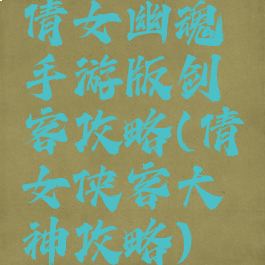 倩女幽魂
手游版剑
客攻略(倩
女侠客大
神攻略)